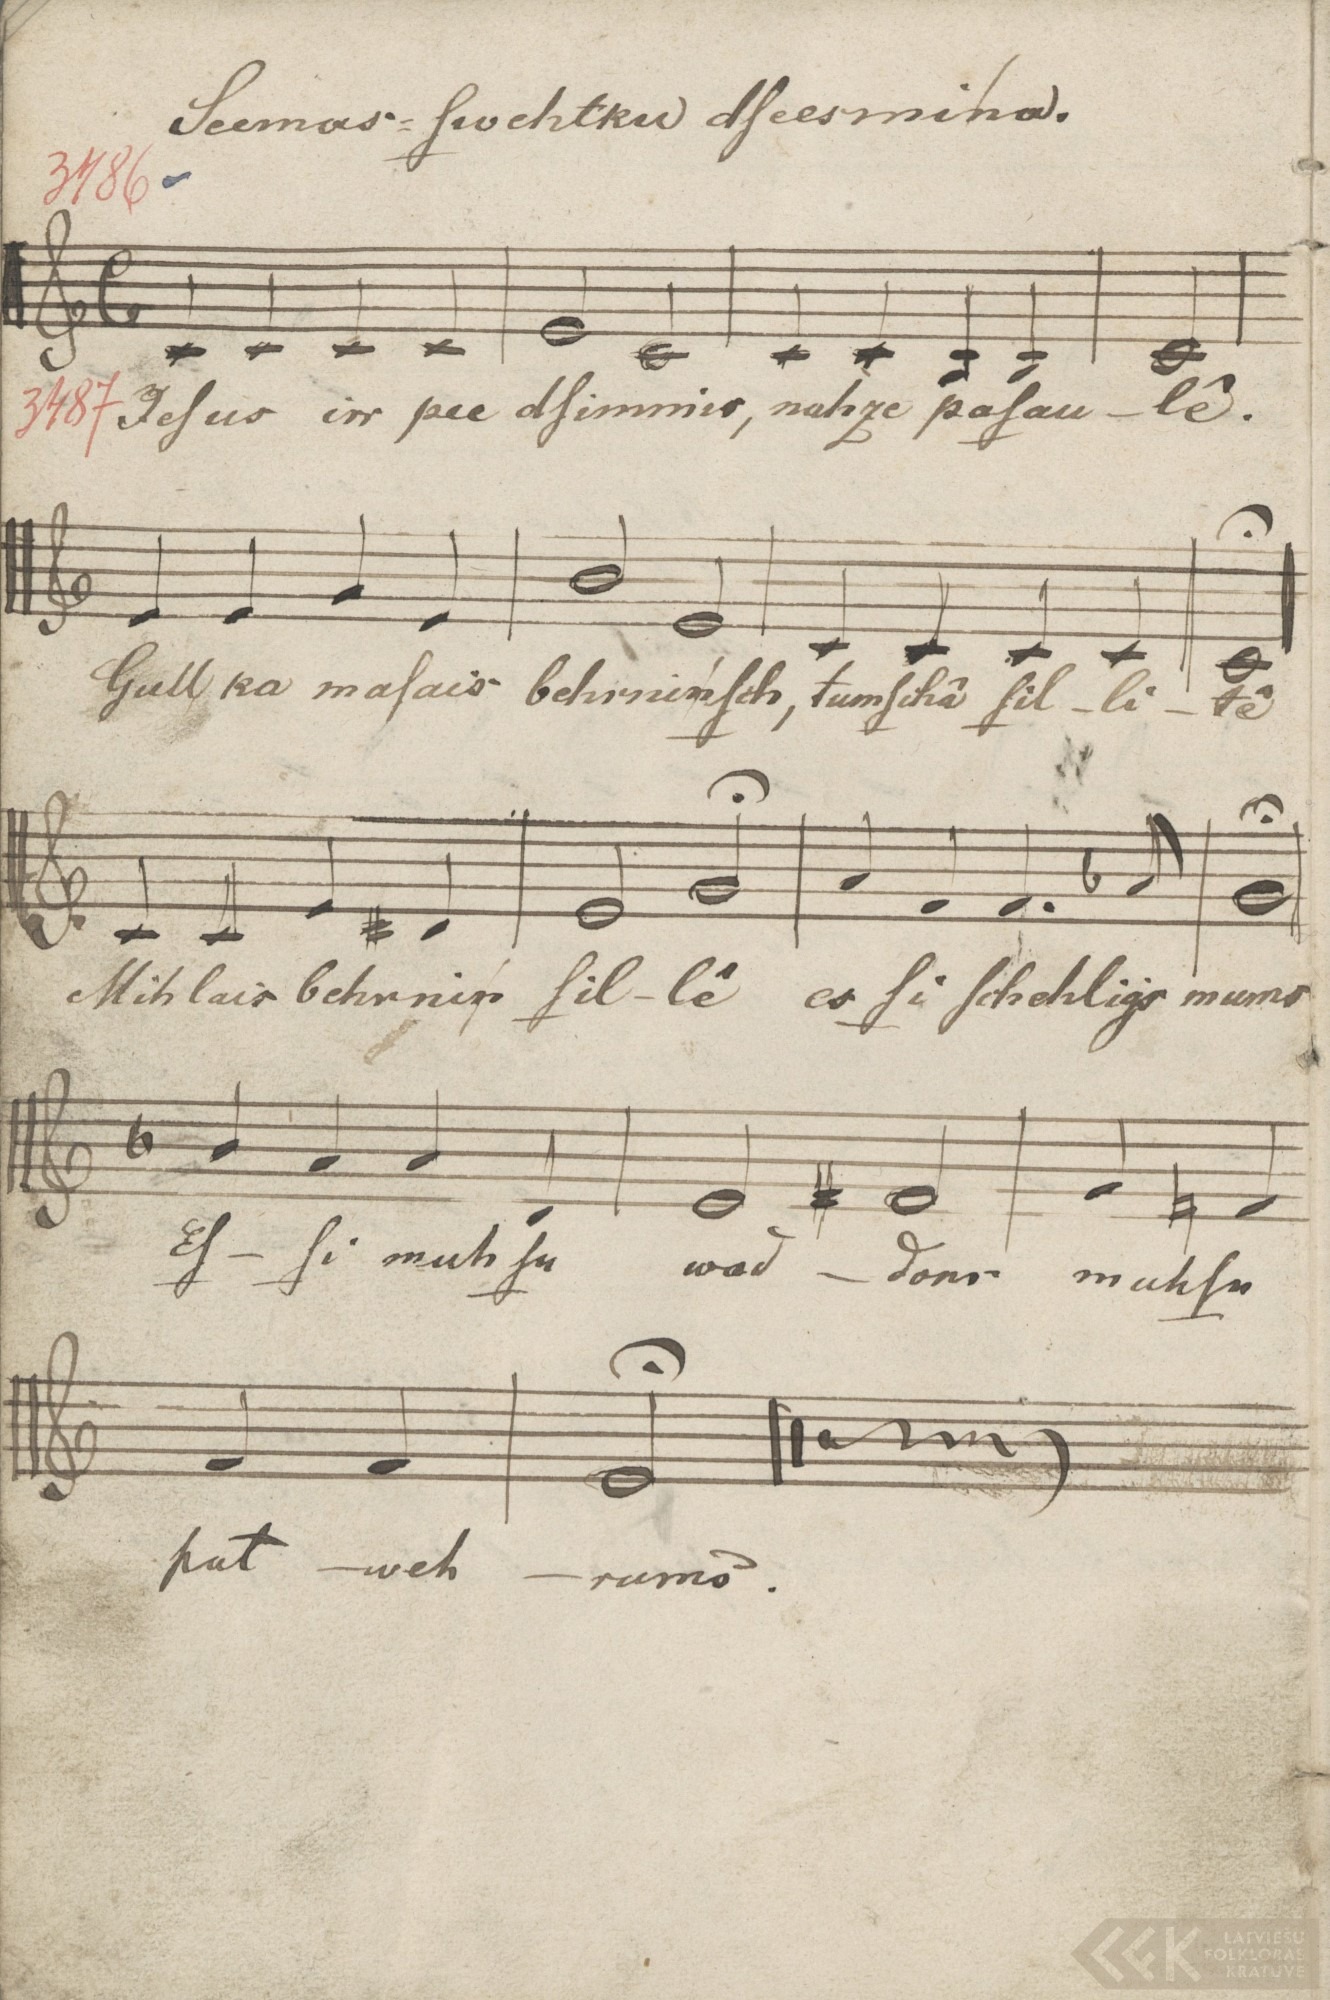 Seemas-ſwehtku dſeesmińa.
3486
3487 Jeſus irr pee dſimmis, nahze paſau-lê.
Gull ka maſais behrninſch, tumſchâ ſil-li-tê
Mihlais behrnin ſil-lê es ſi ſchehligs mums
Eſ-ſi muhſu wad-dons muhſu
pat-weh-rums.
LATVIEŠU
FOLKLORAS
KRĀTUVE